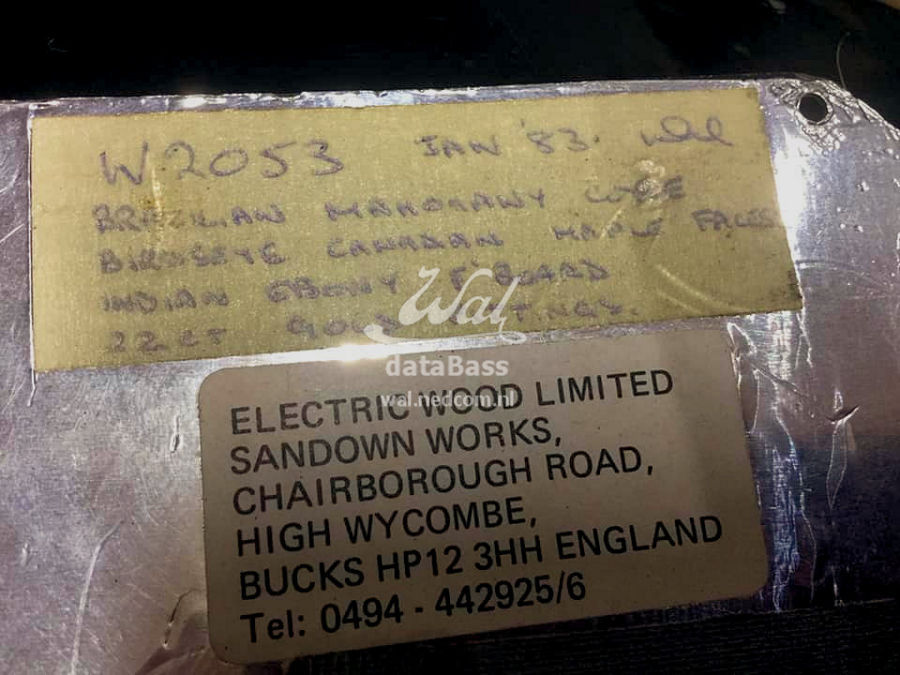 W2053 JAN '83. Wal
BRAZILIAN MAHOGANY CORE
BIRDSEYE CANADIAN MAPLE FACES
INDIAN EBONY F'BOARD
22CT GOLD FITTINGS.
Wal
dataBass
wal.nedcom.nl
ELECTRIC WOOD LIMITED
SANDOWN WORKS,
CHAIRBOROUGH ROAD,
HIGH WYCOMBE,
BUCKS HP12 3HH ENGLAND
Tel: 0494 - 442925/6